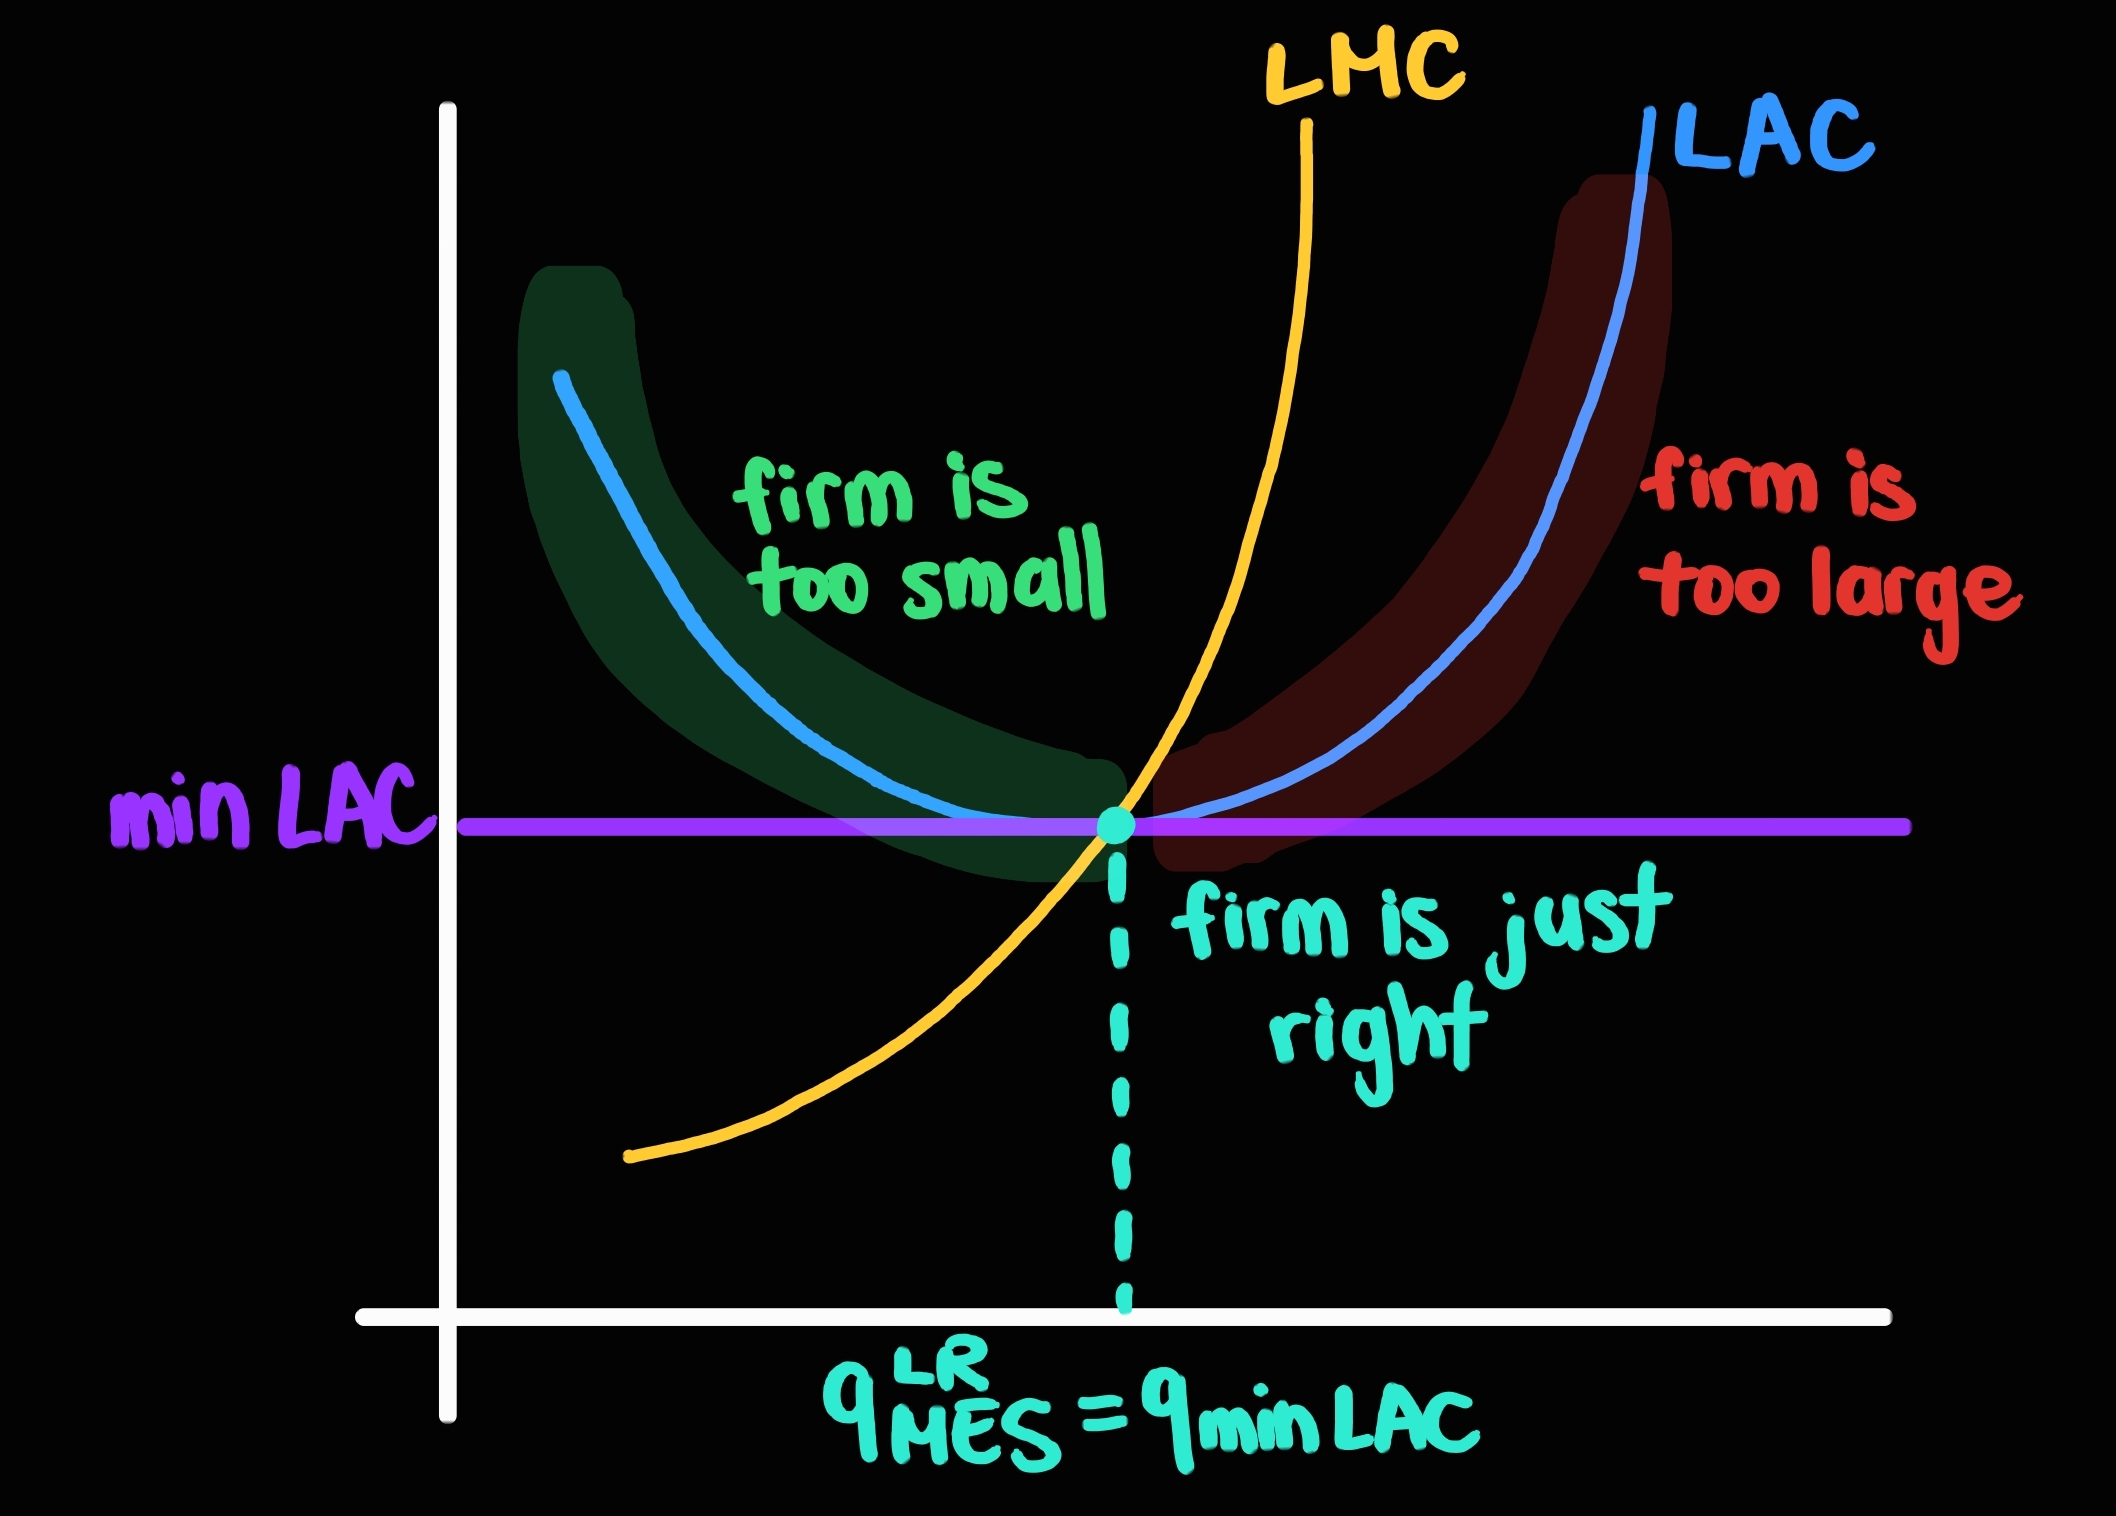 LMC
LAC
firm is
too small
firm is
too large
min LAC
firm is just
right
q^LR_MES = q_min LAC